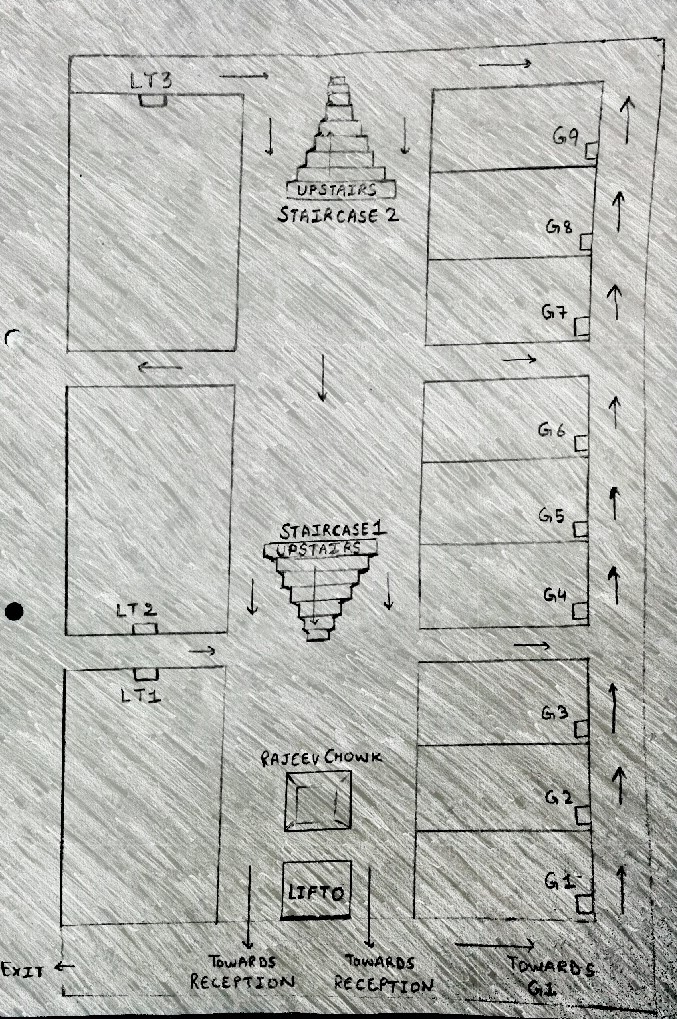 LT3
G9
UPSTAIRS
STAIRCASE 2
G8
G7
G6
STAIRCASE 1
UPSTAIRS
G5
G4
LT2
LT1
G3
RAJEEV CHOWK
G2
LIFTO
G1
EXIT
TOWARDS
RECEPTION
TOWARDS
RECEPTION
TOWARDS
G1